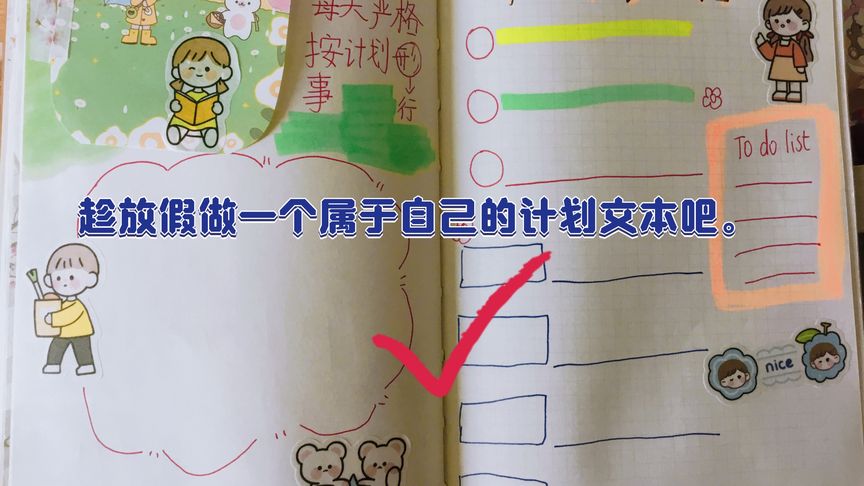 每天严格
按计划刑
事
行
To do list
趁放假做一个属于自己的计划文本吧。
nice